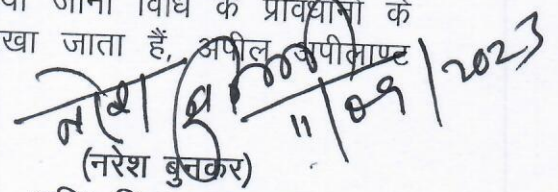 विधि के प्रावधानों के
खा जाता हैं, अपील अपीलाण्ट
नरेश
11/09/2023
(नरेश बुनकर)